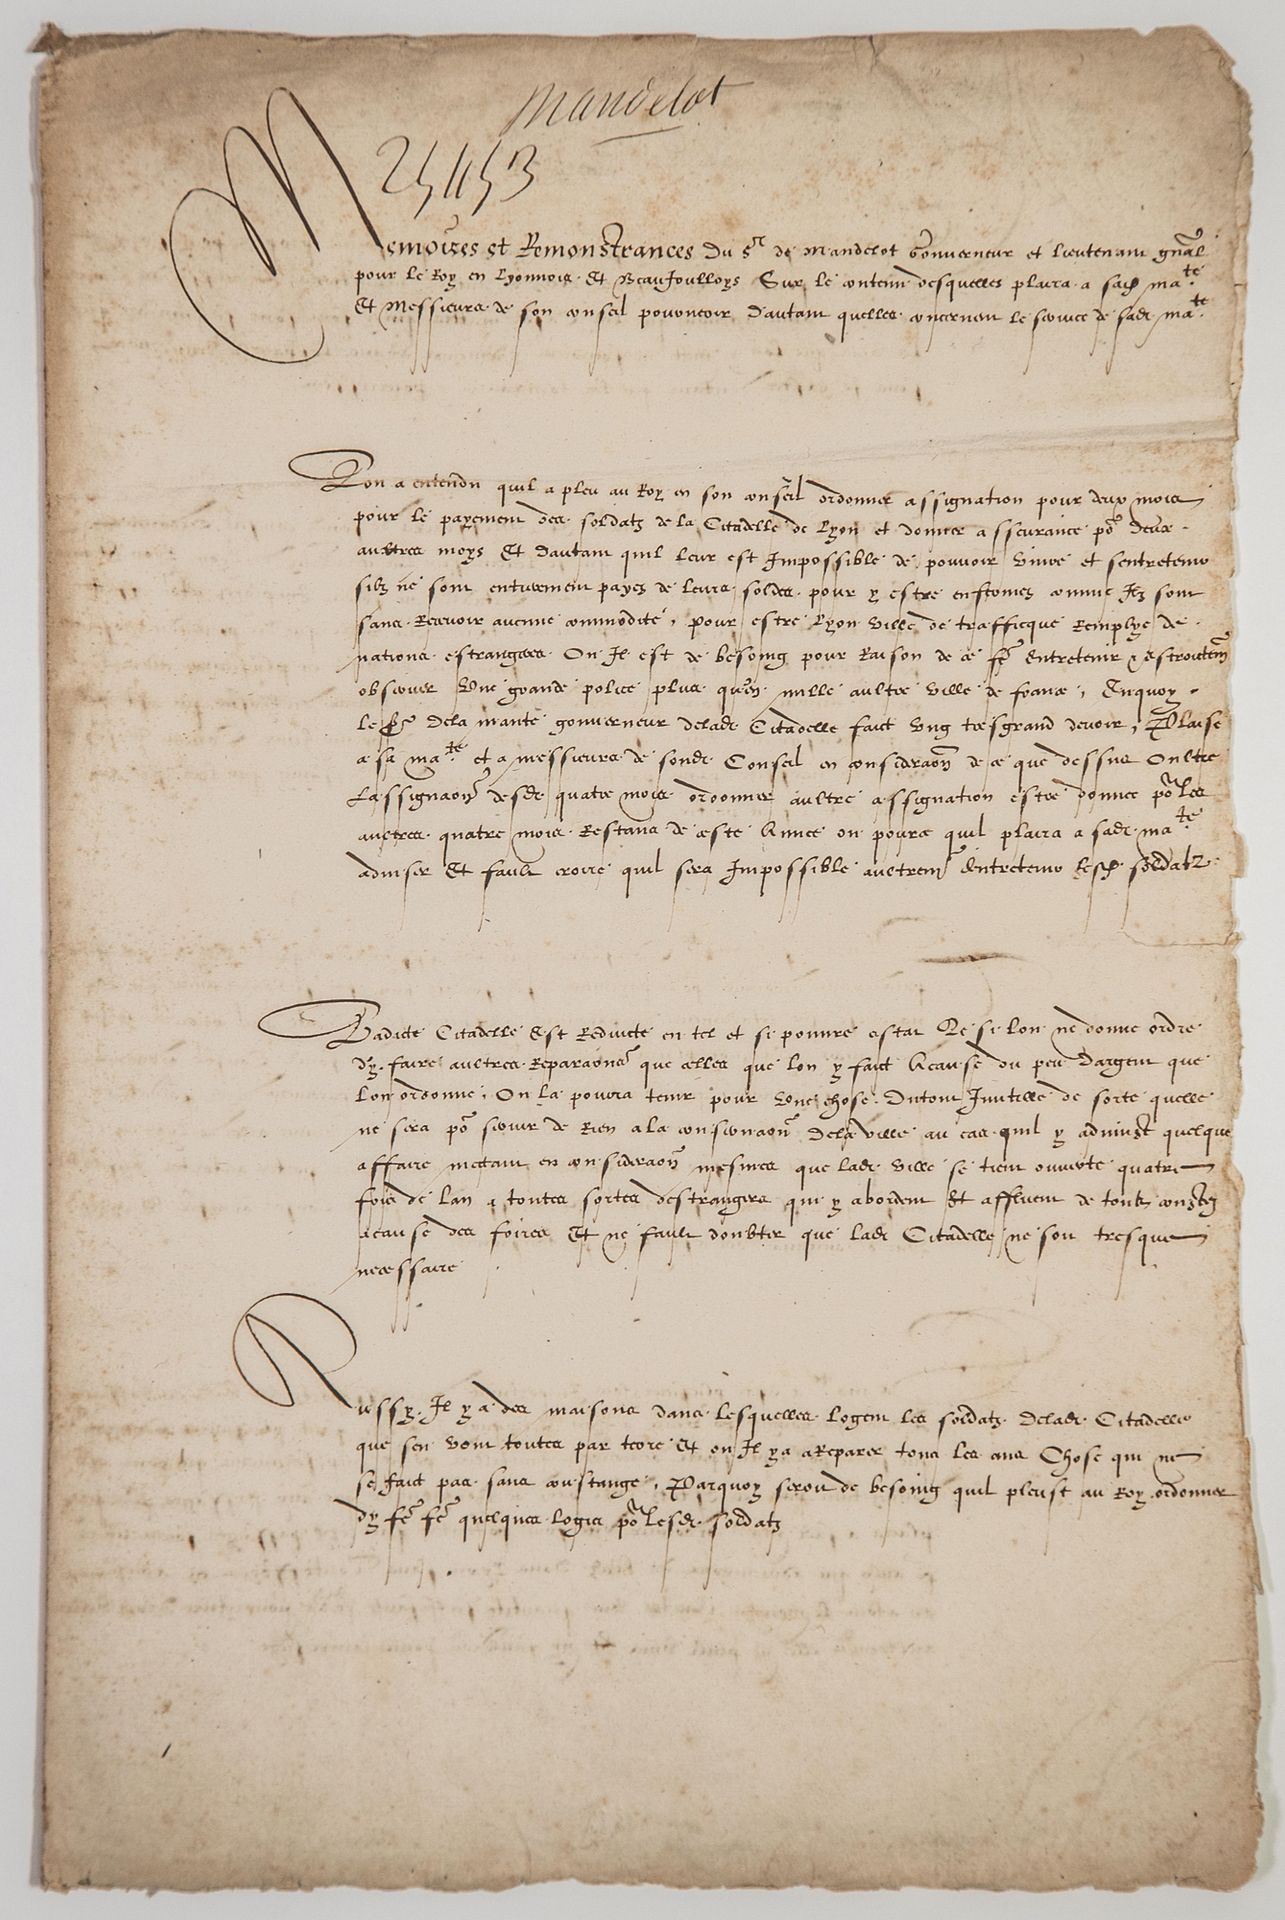 Mandelot
25453
Memoires et Remonstrances Du Sr de Mandelot Gouverneur et Lieutenant gnãl
pour le Roy en Lyonnois Et Beaujoulloys Sur le contenu desquelles plaira a sad ma.te
Et Messieurs de son conseil pouveoir Dautant quelles concernent le service de sadr ma.te
Lon a entendu quil a pleu au Roy en son conseil ordonner assignation pour deux mois
pour le payement des soldatz de la Citadelle de Lyon et donner asseurance por deux
aultres moys Et dautant quil leur est Impossible de pouvoir vivre et sentretenir
silz ne sont entierement payez de leurs soldes pour y estre enfermez comme Ilz sont
sans Recevoir aucune commodité, pour estre Lyon ville de trafficque Remplye de
nations estrangeres On Il est de besoing pour Raison de ce fe entretenir & estroictem
observer Une grande police plus quen nulle aultre ville de france, Enquoy
le Sr dela mante gouverneur deladr Citadelle faict Ung tresgrand devoir, Plaise
a sa ma.te et a messieurs de sondr Conseil en consideraon de ce que dessus Oultre
Lassignaon desdr quatre mois ordonner aultre assignation estre donnee por Les
aultres quatre mois Restans de ceste Annee on pource quil plaira a sadr ma.te
adviser Et fault croire quil sera Impossible aultrem dentretenir lesd soldatz
Ladicte Citadelle Est Reduicte en tel et si pouvre estat Qe si lon ne donne ordre
dy faire aultres Reparaons que celles que lon y faict Acause du peu dargent que
lon ordonne, On la pourra tenir pour Une chose Dutout Inutille de sorte quelle
ne sera por servir de Rien a la conservaon Dela ville au cas quil y advinst quelque
affaire mectant en consideraon mesmes que ladr ville se tient ouverte quatre
fois de lan a toutes sortes destrangers qui y abordent Et affluent de toutz constez
acause des foires Et ne fault doubter que ladr Citadelle ne soit tresque
necessaire
Aussy Il y a des maisons dans lesquelles logent les soldatz deladr Citadelle
que sen vont toutes par terre Et on Il ya a Reparer tous les ans Chose qui ne
se faict pas sans coustange, Parquoy seroit de besoing quil pleust au Roy ordonner
dy fe fe quelques logis por lesdr soldatz